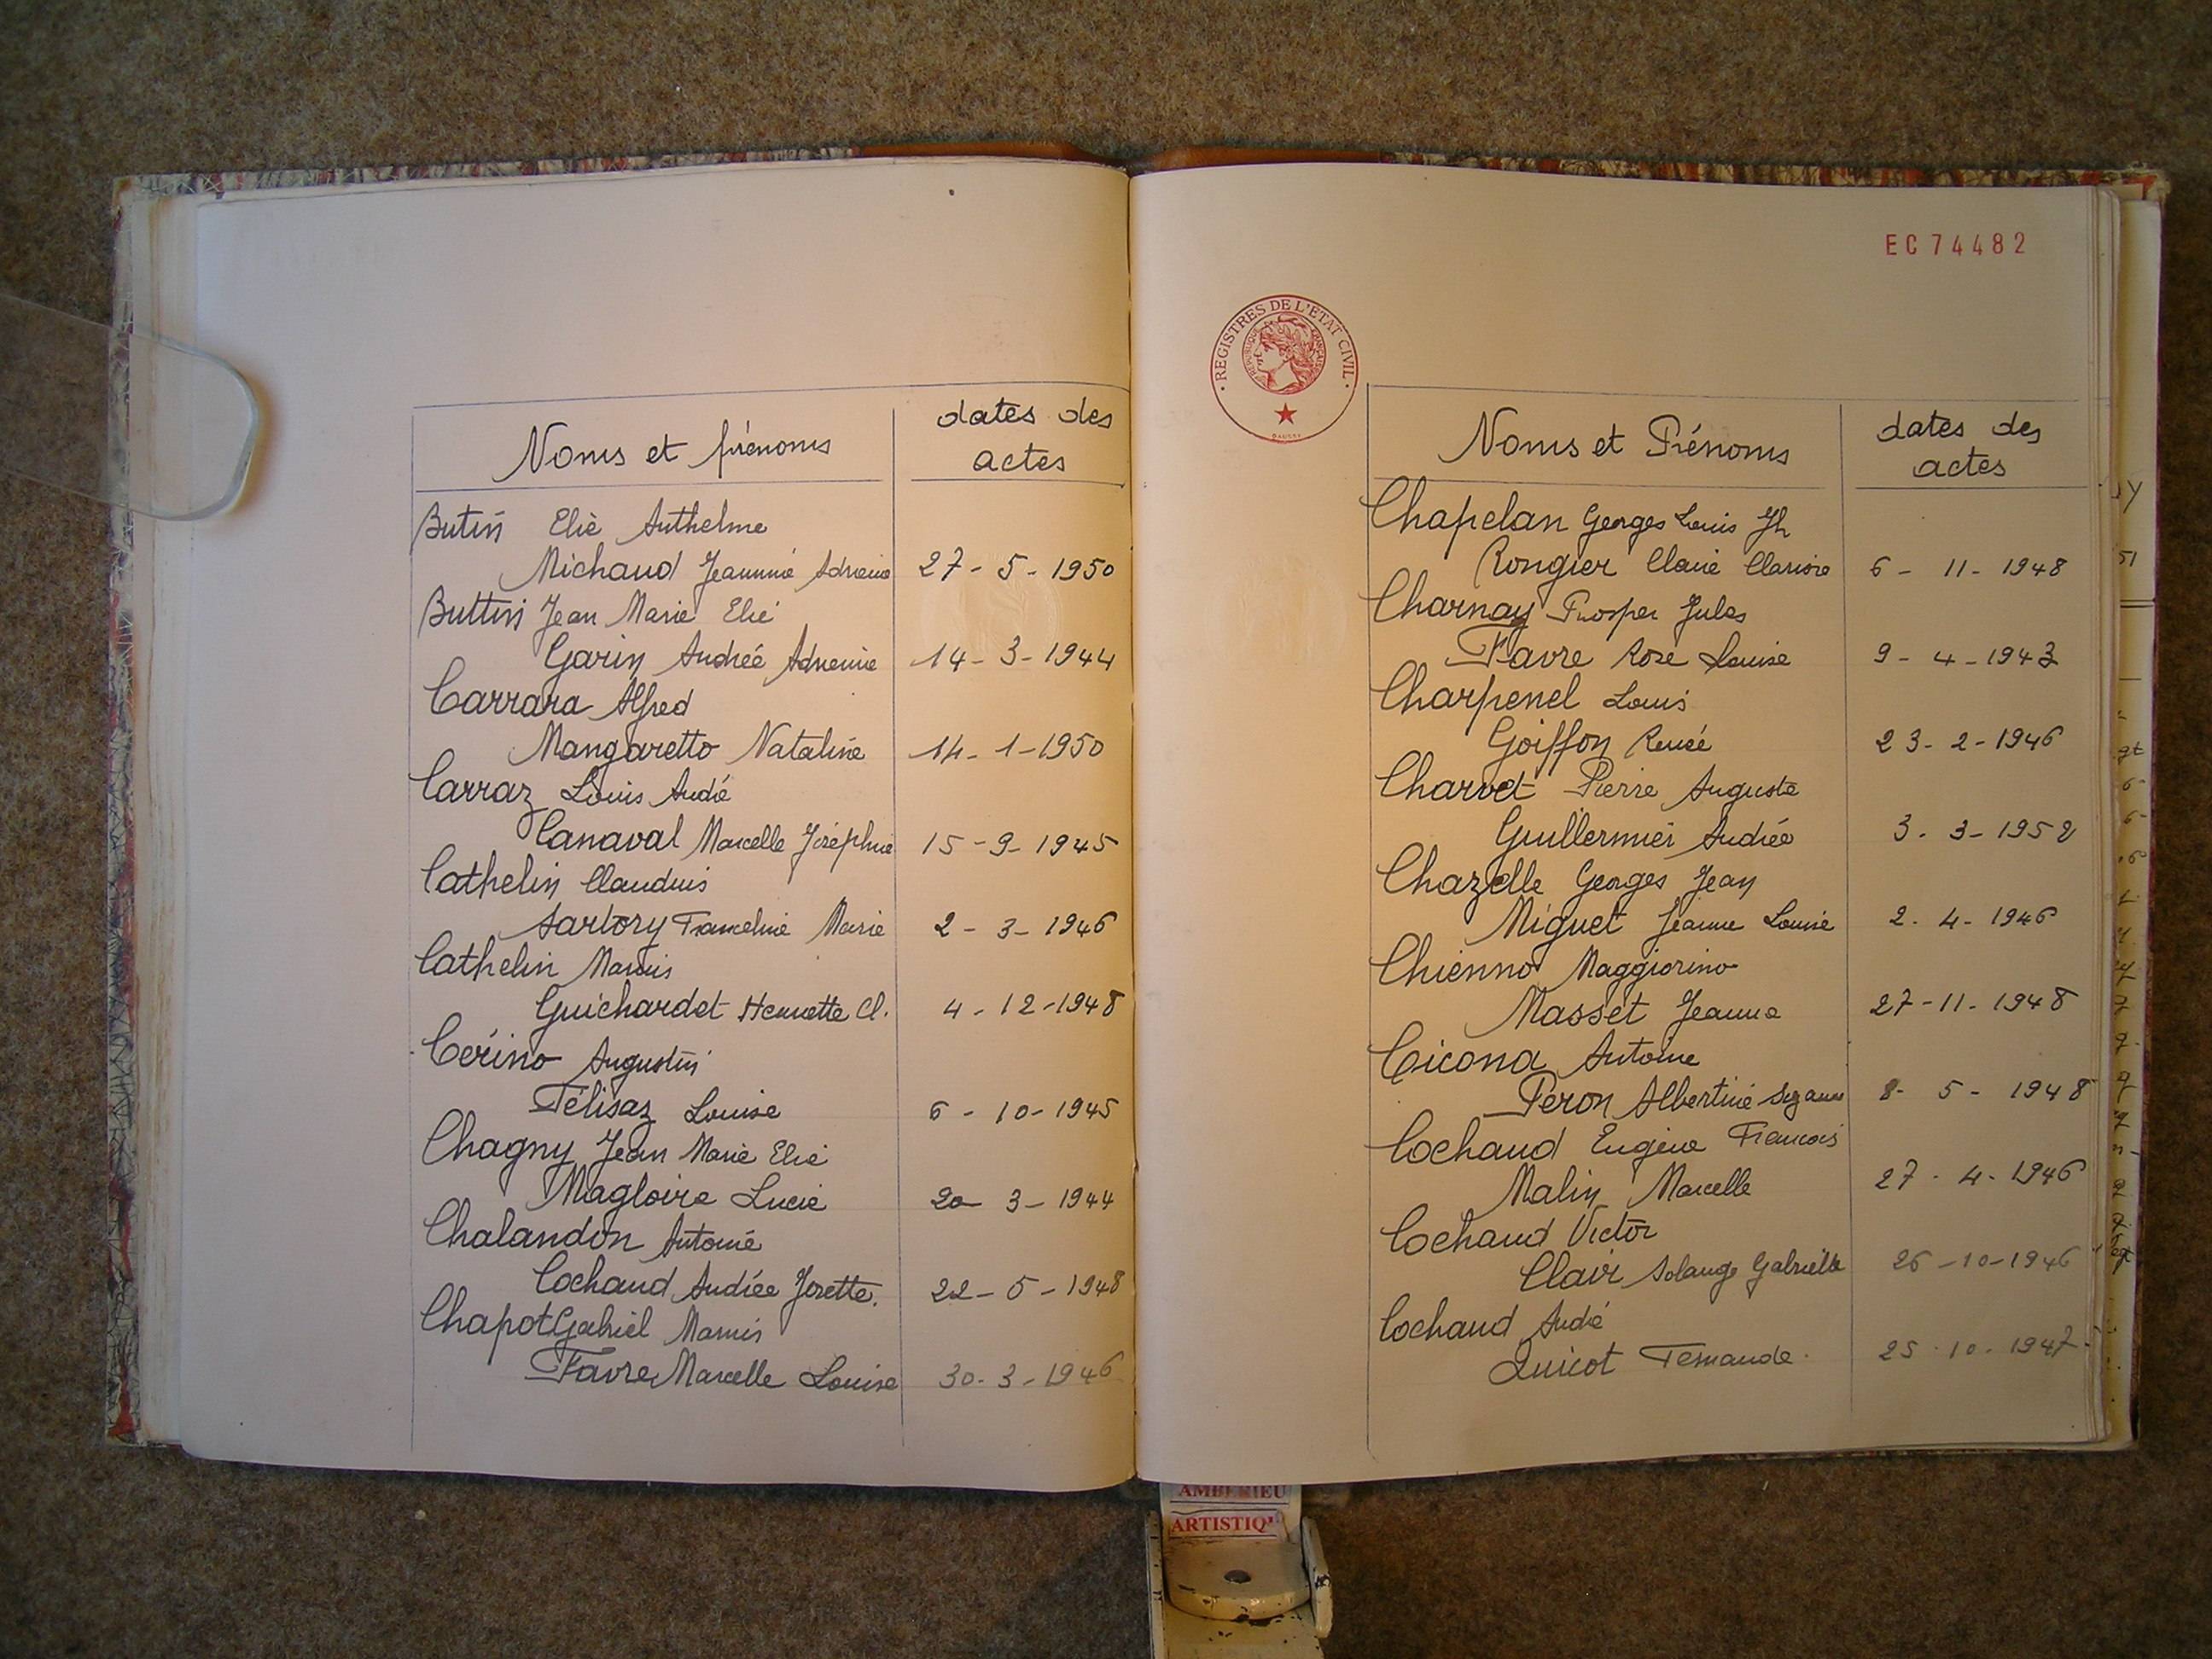 Noms et prénoms
dates des
actes
Butin Elie Anthelme
Michaud Jeannine Adrienne 27 - 5 - 1950
Buttin Jean Marie Elie
Garin Andrée Adrienne 14 - 3 - 1944
Carrara Alfred
Mangaretto Nataline 14 - 1 - 1950
Carraz Louis André
Canaval Marcelle Joséphine 15 - 9 - 1945
Cathelin Claudius
Sartory Franceline Marie 2 - 3 - 1946
Cathelin Marius
Guichardet Henriette Cl. 4 - 12 - 1948
Cérino Augustin
Télisaz Louise 6 - 10 - 1945
Chagny Jean Marie Elie
Magloire Lucie 20 - 3 - 1944
Chalandon Antoine
Cochaud Andrée Josette. 22 - 5 - 1948
Chapot Gabriel Marius
Favre Marcelle Louise 30 - 3 - 1946
EC 74482
REGISTRES DE L'ETAT CIVIL
REPUBLIQUE FRANÇAISE
Noms et Prénoms
dates des
actes
Chapelan Georges Louis Jh
Rongier Claire Clarisse 6 - 11 - 1948
Charnay Prosper Jules
Favre Rose Louise 9 - 4 - 1943
Charpenel Louis
Goiffon Renée 23 - 2 - 1946
Charvet Pierre Auguste
Guillermier Andrée 3 - 3 - 1952
Chazelle Georges Jean
Miguet Jeanne Louise 2 - 4 - 1946
Chienno Maggiorino
Masset Jeanne 27 - 11 - 1948
Cicona Antoine
Peron Albertine Suzanne 8 - 5 - 1948
Cochaud Eugène Francois
Malin Marcelle 27 - 4 - 1946
Cochaud Victor
Clair Solange Gabrielle 26 - 10 - 1946
Cochaud André
Quicot Fernande 25 - 10 - 1947
AMBERIEU
ARTISTIQ